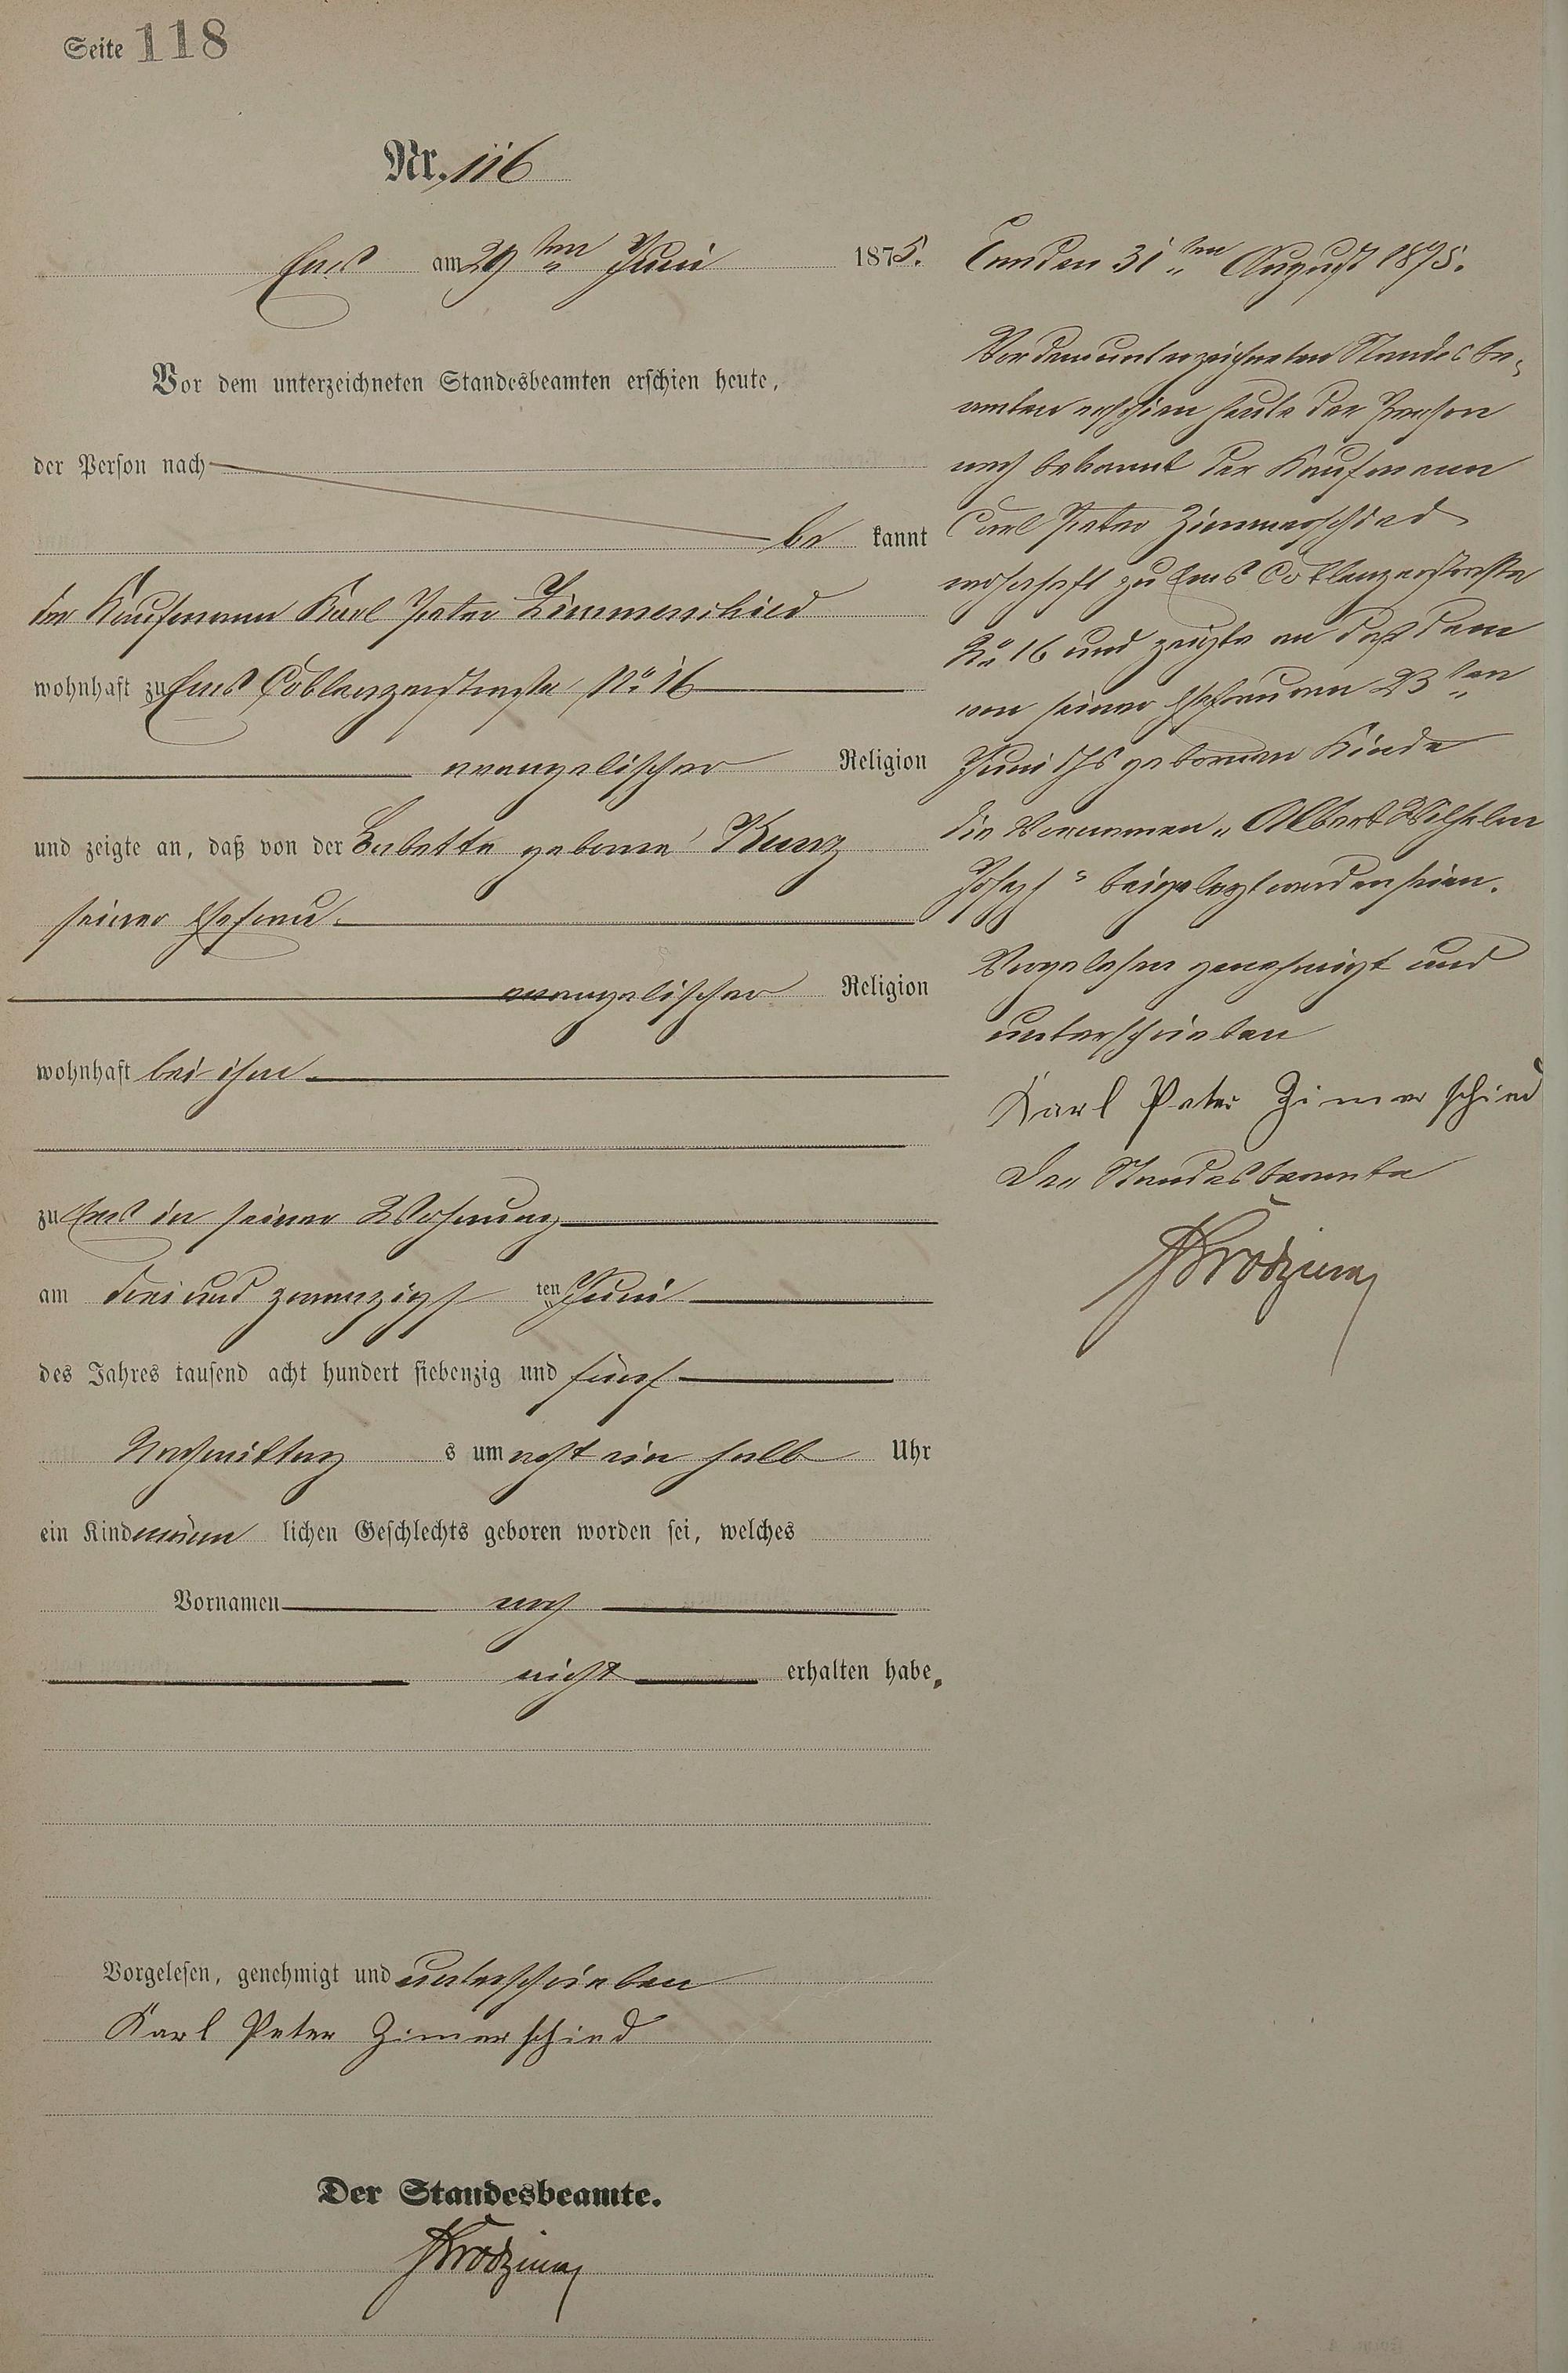 Seite 118
Nr. 116
Ems am 29ten Juni 1875.
Vor dem unterzeichneten Standesbeamten erschien heute,
der Person nach
be kannt
der Kaufmann Karl Peter Zimmerschied
wohnhaft zu Ems Coblenzerstraße No 16
evangelischer Religion
und zeigte an, daß von der Babette geborne Kunz
seiner Ehefrau
evangelischer Religion
wohnhaft bei ihm
zu Ems in seiner Wohnung
am drei und zwanzigst ten Juni
des Jahres tausend acht hundert siebenzig und fünf
Nachmittag s um acht ein halb Uhr
ein Kind männ lichen Geschlechts geboren worden sei, welches
Vornamen noch
nicht erhalten habe.
Vorgelesen, genehmigt und unterschrieben
Karl Peter Zimerschied
Der Standesbeamte.
Ems den 31ten August 1875.
Vor dem unterzeichneten Standesbe-
amten erschien heute der Person
nach bekannt der Kaufmann
Carl Peter Zimmerschied
wohnhaft zu Ems Coblenzerstraße
No 16 und zeigte an daß dem
von seiner Ehefrau am 23ten
Juni ds Js gebornen Kinde
die Vornamen „Albert Wilhelm
Joseph" beigelegt worden seien.
Vorgelesen genehmigt und
unterschrieben
Karl Peter Zimerschied
Der Standesbeamte